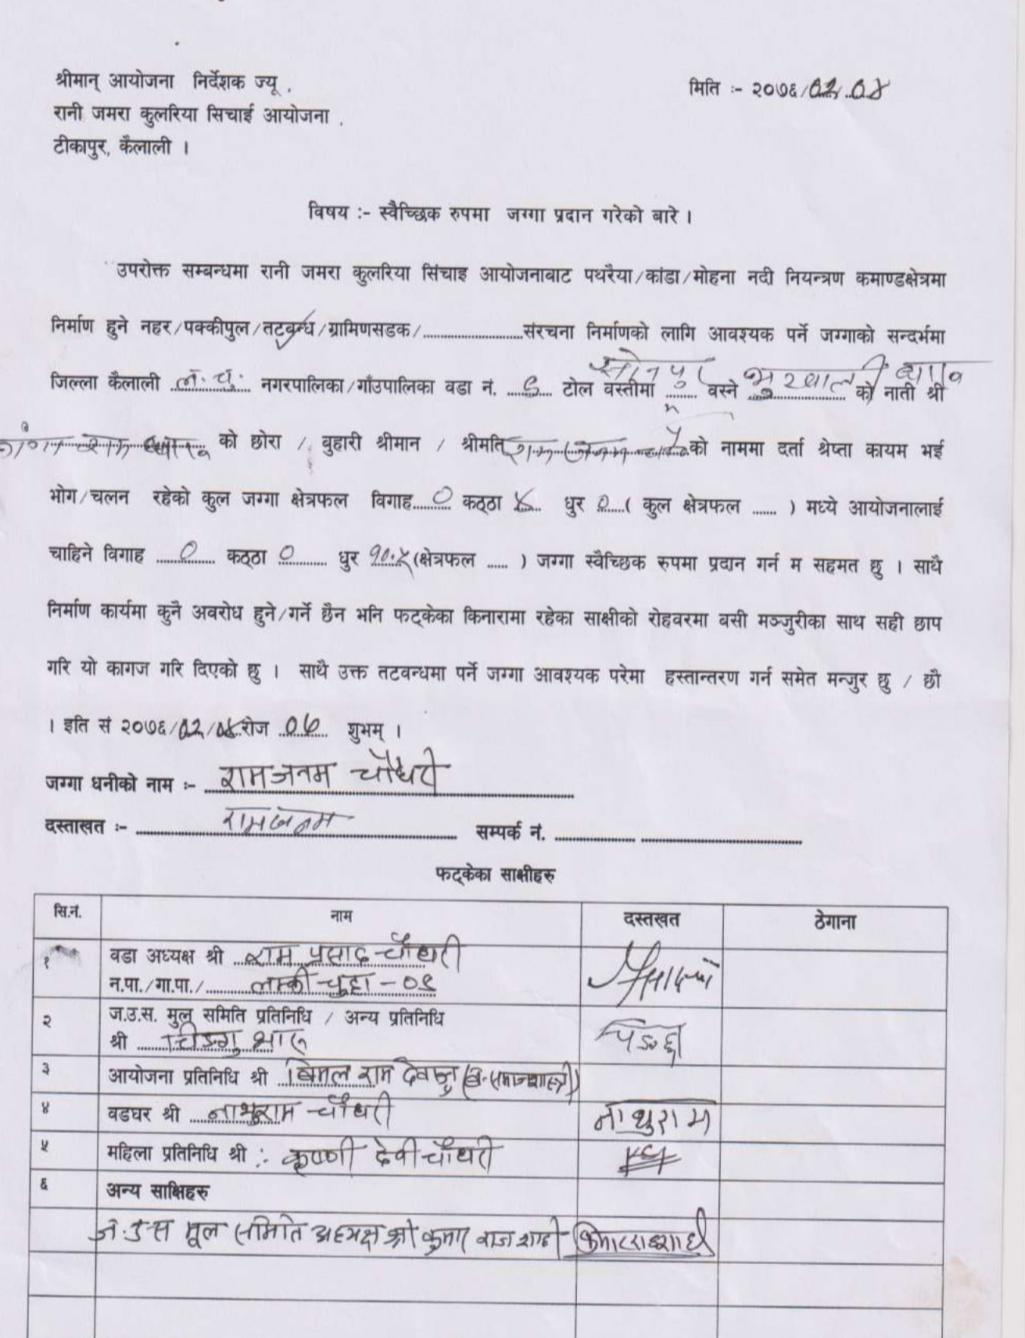 श्रीमान् आयोजना निर्देशक ज्यू .
मिति :- २०७६/०२.०४
रानी जमरा कुलरिया सिचाई आयोजना .
टीकापुर, कैलाली ।
विषय :- स्वैच्छिक रुपमा जग्गा प्रदान गरेको बारे ।
उपरोक्त सम्बन्धमा रानी जमरा कुलरिया सिंचाइ आयोजनाबाट पथरैया/कांडा/मोहना नदी नियन्त्रण कमाण्डक्षेत्रमा
निर्माण हुने नहर/पक्कीपुल/तटबन्ध/ग्रामिणसडक/....................संरचना निर्माणको लागि आवश्यक पर्ने जग्गाको सन्दर्भमा
जिल्ला कैलाली ल.चु. नगरपालिका/गाँउपालिका वडा नं. ९ टोल वस्तीमा वस्ने को नाती श्री
को छोरा / बुहारी श्रीमान / श्रीमति रामजनम को नाममा दर्ता श्रेप्ता कायम भई
भोग/चलन रहेको कुल जग्गा क्षेत्रफल विगाह ० कठ्ठा धुर ० ( कुल क्षेत्रफल ...... ) मध्ये आयोजनालाई
चाहिने विगाह ० कठ्ठा ० धुर १०.५ (क्षेत्रफल ..... ) जग्गा स्वैच्छिक रुपमा प्रदान गर्न म सहमत छु । साथै
निर्माण कार्यमा कुनै अवरोध हुने/गर्ने छैन भनि फट्केका किनारामा रहेका साक्षीको रोहवरमा बसी मञ्जुरीका साथ सही छाप
गरि यो कागज गरि दिएको छु । साथै उक्त तटबन्धमा पर्ने जग्गा आवश्यक परेमा हस्तान्तरण गर्न समेत मन्जुर छु / छौ
। इति सं २०७६/०२/०४ रोज ०६ शुभम् ।
जग्गा धनीको नाम :- रामजनम चौधरी
दस्ताखत :- रामजनम सम्पर्क नं. ..............................
फट्केका साक्षीहरु
सि.नं. नाम दस्तखत ठेगाना
१ वडा अध्यक्ष श्री राम प्रसाद चौधरी
न.पा./गा.पा./ लम्की चुहा - ०९
२ ज.उ.स. मुल समिति प्रतिनिधि / अन्य प्रतिनिधि
श्री
३ आयोजना प्रतिनिधि श्री बिमल राम
४ वडघर श्री नाथुराम चौधरी नाथुराम
५ महिला प्रतिनिधि श्री : कृष्णी देवी चौधरी
६ अन्य साक्षिहरु
ज.उ.स मूल समिति अध्यक्ष श्री कुमार राज शाही